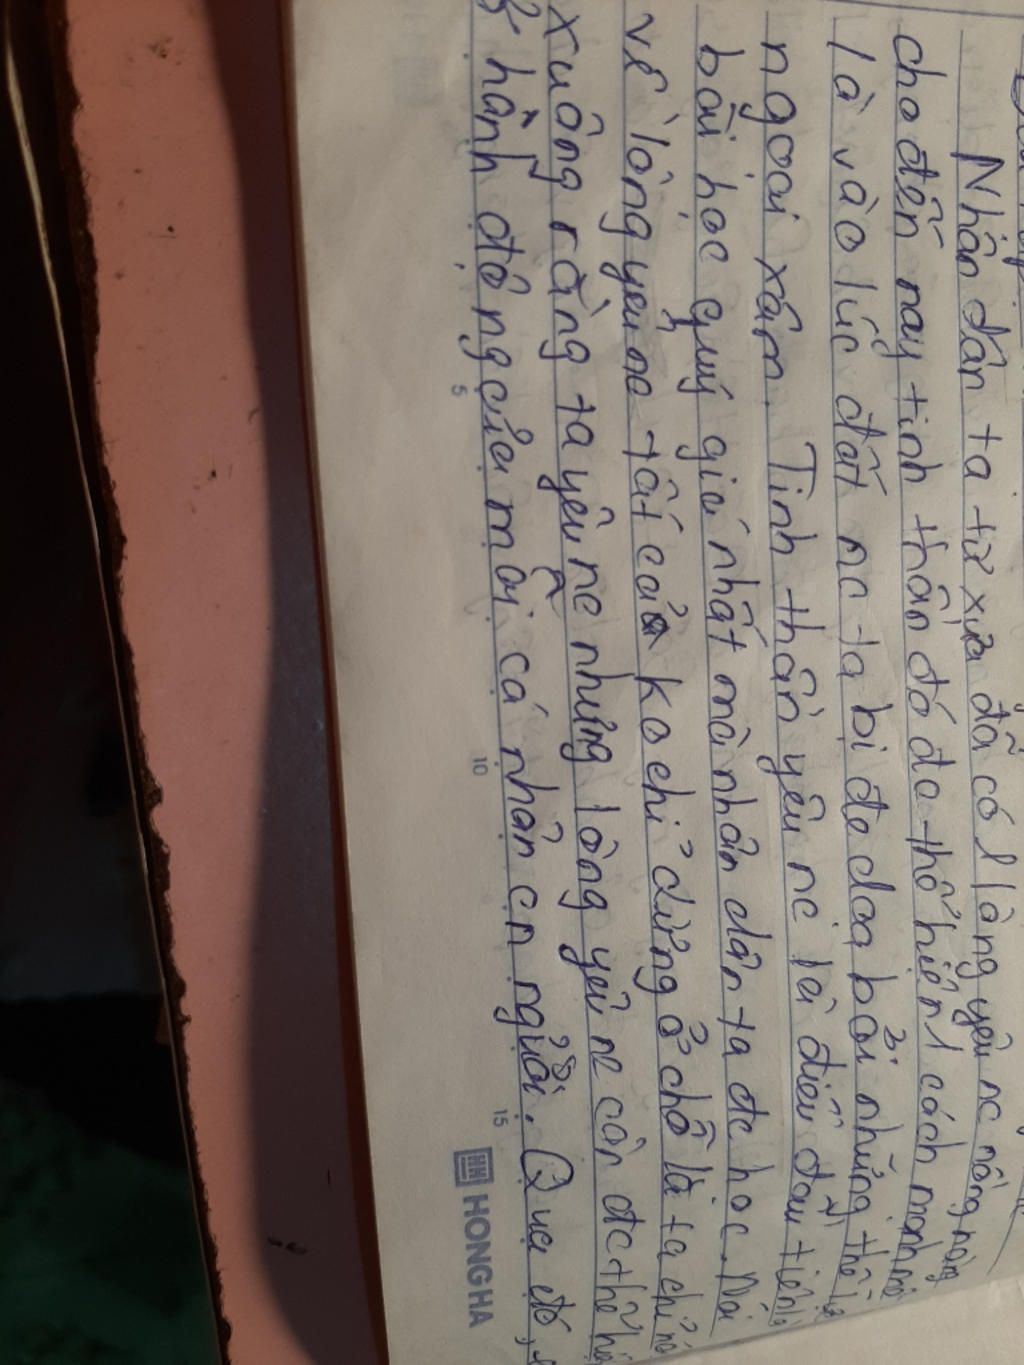 Nhân dân ta từ xưa đã có 1 lòng yêu nc nồng nàng
cho đến nay tinh thần đó đc thể hiện 1 cách mạnh mẽ
là vào lúc đất nc ta bị đe doạ bởi những thế lự
ngoại xâm. Tinh thần yêu nc là điều đầu tiên là
bài học quý giá nhất mà nhân dân ta đc học. Nói
về lòng yêu nc tất cả ko chỉ dừng ở chỗ là ta chỉ nó
xuông rằng ta yêu nc nhưng lòng yêu nc còn đc thể hiệ
ở hành động của mỗi cá nhân cn người. Qua đó,
5 10 15
HH HONGHA